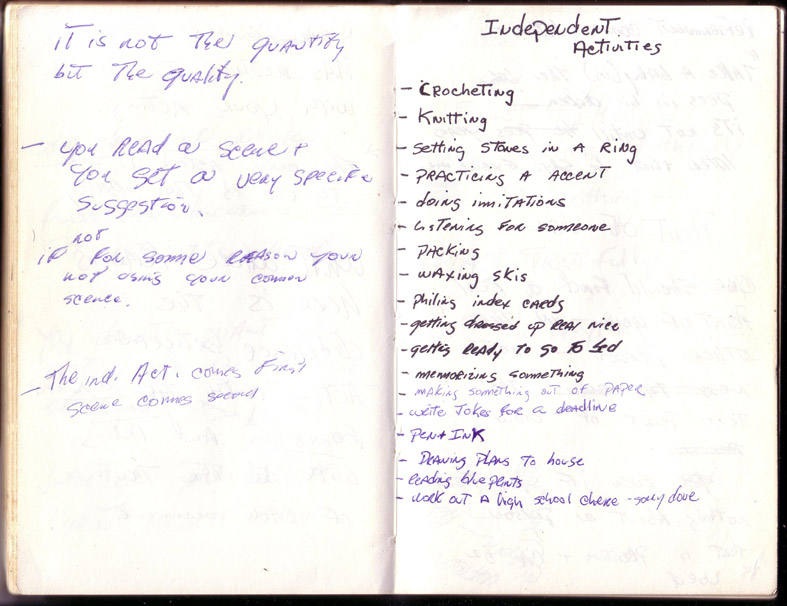 it is not the quantity
bit the quality.
- you read a scene +
you get a very specific
suggestion.
not
if for some reason your
not using your common
scence.
- The ind. Act. comes first
scene comes second
Independent
Activities
- Crocheting
- Knitting
- setting stones in a ring
- practicing a accent
- doing imitations
- listening for someone
- packing
- waxing skis
- philing index cards
- getting dressed up real nice
- getting ready to go to bed
- memorizing something
- making something out of paper
- write jokes for a deadline
- pen + ink
- Drawing plans to house
- reading blue prints
- work out a high school cheer -